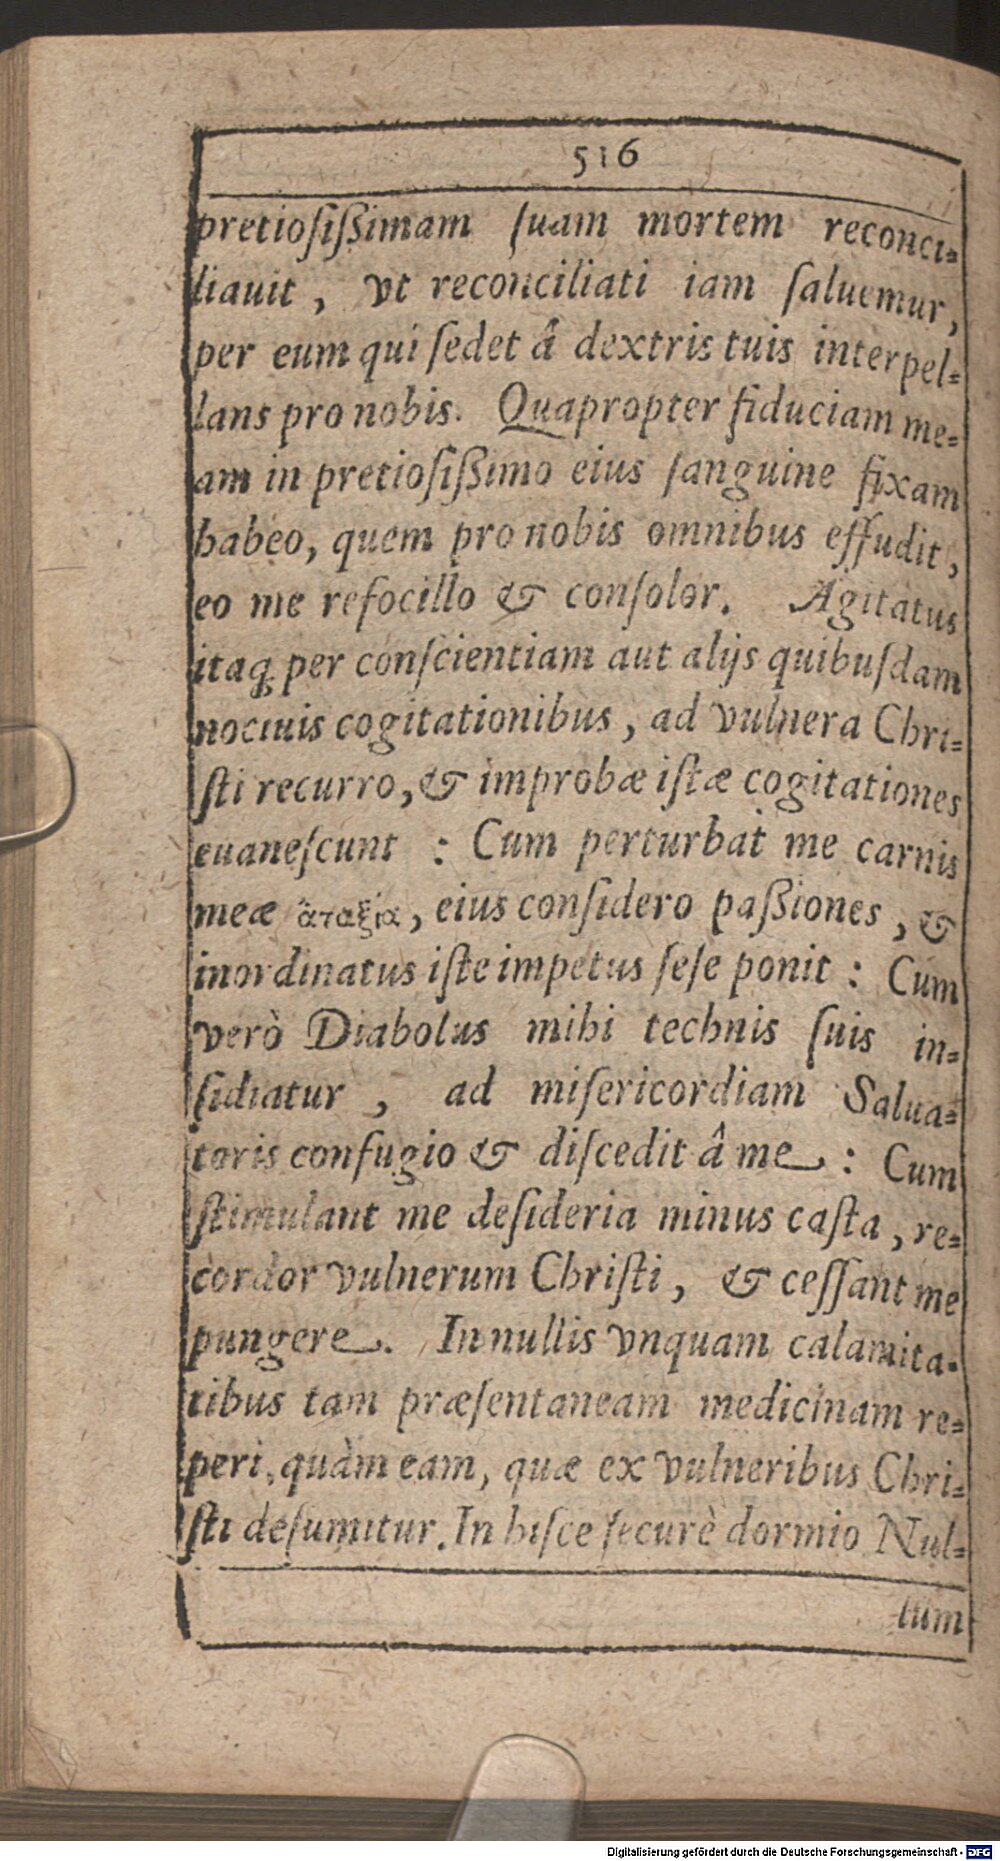 516
pretiosißimam suam mortem reconci-
liauit, vt reconciliati iam saluemur,
per eum qui sedet â dextris tuis interpel-
lans pro nobis. Quapropter fiduciam me-
am in pretiosißimo eius sanguine fixam
habeo, quem pro nobis omnibus effudit,
eo me refocillo & consolor. Agitatus
itaq́; per conscientiam aut alijs quibusdam
nociuis cogitationibus, ad vulnera Chri-
sti recurro, & improbæ istæ cogitationes
euanescunt : Cum perturbat me carnis
meæ ἀταξία, eius considero paßiones, &
inordinatus iste impetus sese ponit : Cum
verò Diabolus mihi technis suis in-
sidiatur, ad misericordiam Salua-
toris confugio & discedit â me : Cum
stimulant me desideria minus casta, re-
cordor vulnerum Christi, & cessant me
pungere. In nullis vnquam calamita-
tibus tam præsentaneam medicinam re-
peri, quàm eam, quæ ex vulneribus Chri-
sti desumitur. In hisce securè dormio Nul-
lum
Digitalisierung gefördert durch die Deutsche Forschungsgemeinschaft - DFG